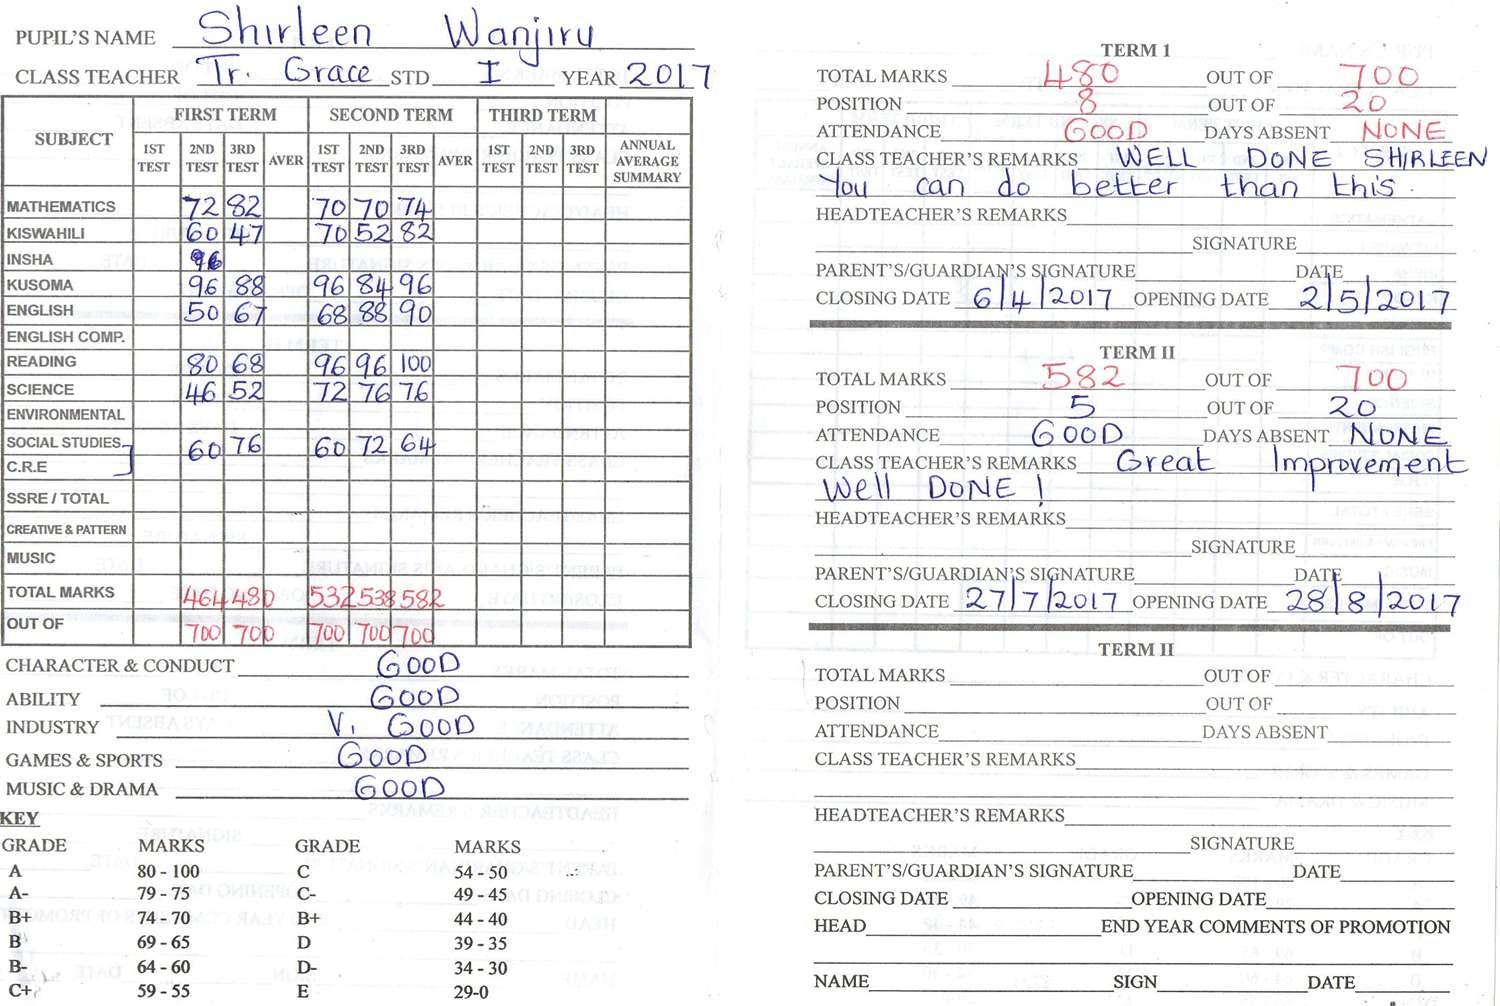 PUPIL'S NAME Shirleen Wanjiru
CLASS TEACHER Tr. Grace STD I YEAR 2017
SUBJECT FIRST TERM SECOND TERM THIRD TERM
1ST TEST 2ND TEST 3RD TEST AVER 1ST TEST 2ND TEST 3RD TEST AVER 1ST TEST 2ND TEST 3RD TEST ANNUAL AVERAGE SUMMARY
MATHEMATICS 72 82 70 70 74
KISWAHILI 60 47 70 52 82
INSHA
KUSOMA 96 88 96 84 96
ENGLISH 50 67 68 88 90
ENGLISH COMP.
READING 80 68 96 96 100
SCIENCE 46 52 72 76 76
ENVIRONMENTAL
SOCIAL STUDIES 60 76 60 72 64
C.R.E
SSRE / TOTAL
CREATIVE & PATTERN
MUSIC
TOTAL MARKS 464 480 532 538 582
OUT OF 700 700 700 700 700
CHARACTER & CONDUCT GOOD
ABILITY GOOD
INDUSTRY V. GOOD
GAMES & SPORTS GOOD
MUSIC & DRAMA GOOD
KEY
GRADE MARKS GRADE MARKS
A 80 - 100 C 54 - 50
A- 79 - 75 C- 49 - 45
B+ 74 - 70 B+ 44 - 40
B 69 - 65 D 39 - 35
B- 64 - 60 D- 34 - 30
C+ 59 - 55 E 29-0
TERM 1
TOTAL MARKS 480 OUT OF 700
POSITION 8 OUT OF 20
ATTENDANCE GOOD DAYS ABSENT NONE
CLASS TEACHER'S REMARKS WELL DONE SHIRLEEN
You can do better than this.
HEADTEACHER'S REMARKS
SIGNATURE
PARENT'S/GUARDIAN'S SIGNATURE DATE
CLOSING DATE 6/4/2017 OPENING DATE 2/5/2017
TERM II
TOTAL MARKS 582 OUT OF 700
POSITION 5 OUT OF 20
ATTENDANCE GOOD DAYS ABSENT NONE
CLASS TEACHER'S REMARKS Great Improvement
Well DONE !
HEADTEACHER'S REMARKS
SIGNATURE
PARENT'S/GUARDIAN'S SIGNATURE DATE
CLOSING DATE 27/7/2017 OPENING DATE 28/8/2017
TERM II
TOTAL MARKS OUT OF
POSITION OUT OF
ATTENDANCE DAYS ABSENT
CLASS TEACHER'S REMARKS
HEADTEACHER'S REMARKS
SIGNATURE
PARENT'S/GUARDIAN'S SIGNATURE DATE
CLOSING DATE OPENING DATE
HEAD END YEAR COMMENTS OF PROMOTION
NAME SIGN DATE